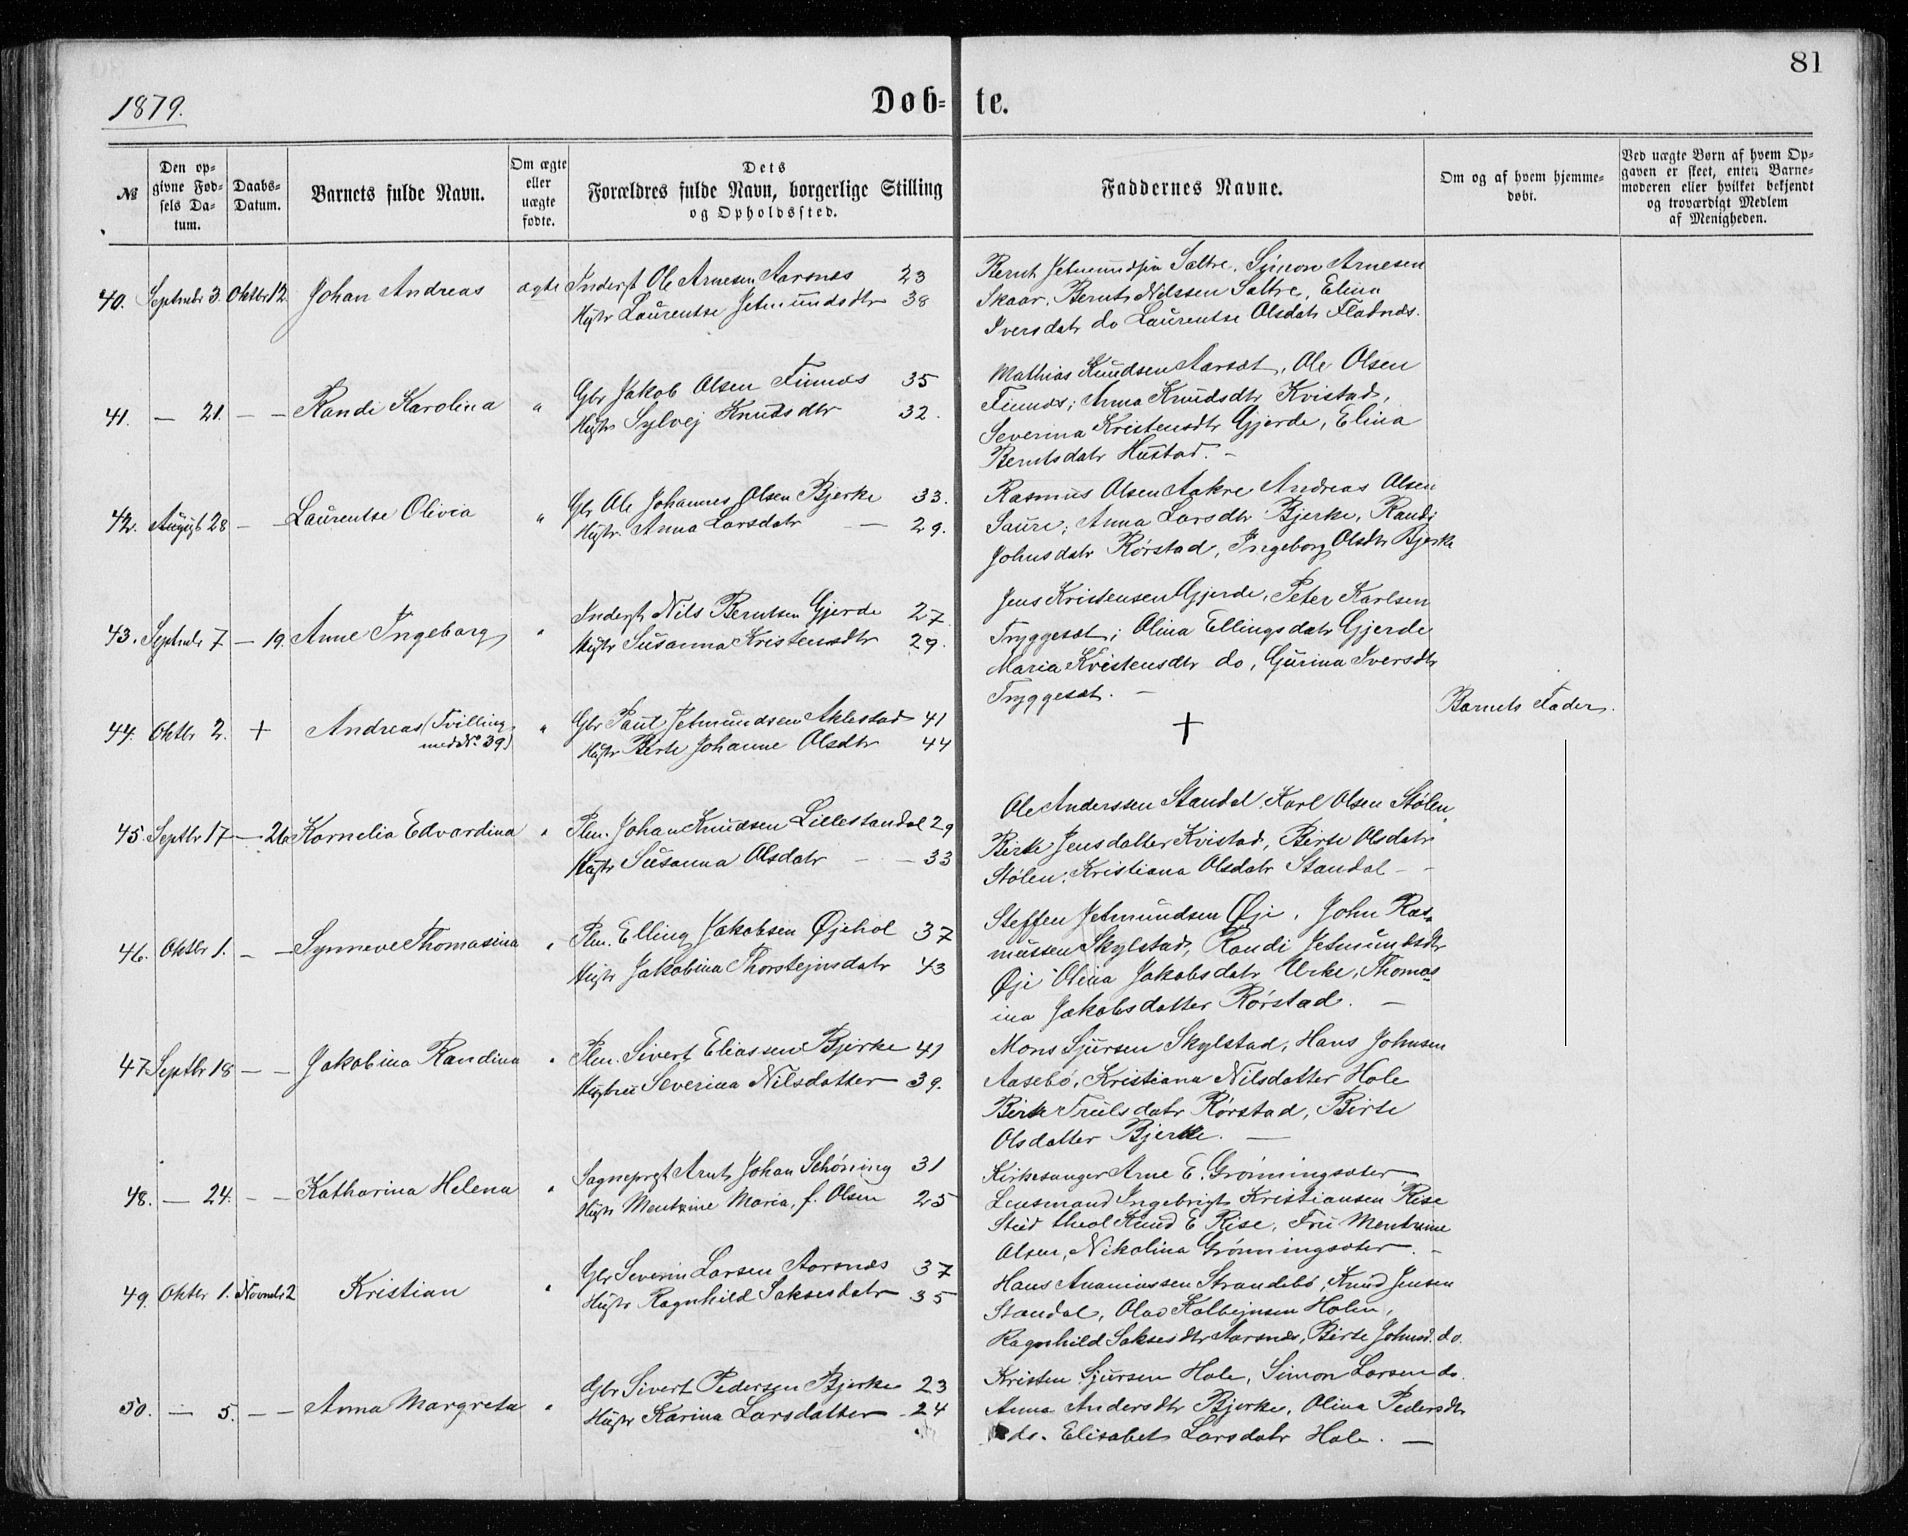 81
1879.
Døb- te.
№
Den op-
givne Fød-
sels Da-
tum.
Daabs-
Datum.
Barnets fulde Navn.
Om ægte
eller
uægte
fødte.
Dets
Forældres fulde Navn, borgerlige Stilling
og Opholdssted.
Faddernes Navne.
Om og af hvem hjemme-
døbt.
Ved uægte Børn af hvem Op-
gaven er skeet, enten Barne-
moderen eller hvilket bekjendt
og troværdigt Medlem
af Menigheden.
40. Septmbr 3. Oktbr 12 Johan Andreas ægte
Inderst Ole Arnesen Aarsnes 23
Hustr Laurentse Jetmundsdtr 38
Bernt Jetmundsen Sætre, Simon Arnesen
Skaar, Bernt Nilssen Sætre, Elina
Iversdatr do Laurentse Olsdatr Fladnæs.
41. — 21. — — Randi Karolina "
Gbr Jakob Olsen Finnæs 35
Hustr Sylvej Knudsdtr 32.
Mathias Knudsen Aarsæt, Ole Olsen
Finnæs; Anna Knudsdtr Kvistad,
Severina Kristensdtr Gjerde, Elina
Berntsdatr Hustad. —
42. August 28 — — Laurentse Olivia "
Gbr Ole Johannes Olsen Bjerke 33.
Hustr. Anna Larsdatr — 29.
Rasmus Olsen Aakre Andreas Olsen
Saure; Anna Larsdtr Bjerke, Randi
Johnsdatr Rørstad, Ingeborg Olsdtr Bjerke
43. Septmbr 7 — 19. Anne Ingeborg "
Inderst Nils Berntsen Gjerde 27.
Hustr Susanna Kristensdtr 29.
Jens Kristensen Gjerde, Peter Karlsen
Tryggesæt; Olina Ellingsdatr Gjerde
Maria Kristensdtr do, Gurina Iversdtr
Tryggesæt. —
44. Oktbr 2. + Andreas (Tvilling
med No 39) "
Gbr Paul Jetmundsen Aklestad 41
Hustr Birte Johanne Olsdtr 44
+
Barnets Fader.
45. Septbr 17 — 26 Kornelia Edvardina "
Plm. Johan Knudsen Lillestandal 29
Hustr Susanna Olsdatr — — 33
Ole Anderssen Standal, Karl Olsen Stølen,
Birte Jensdatter Kvistad, Birte Olsdatr
Stølen; Kristiana Olsdatr Standal — —
46. Oktbr 1. — — Synneve Thomasina "
Plm. Elling Jakobsen Øjehol 37
Hustr Jakobina Thorstejnsdatr 43
Steffen Jetmundsen Øje, John Ras-
mussen Skylstad, Randi Jetmundsdtr
Øje Olina Jakobsdatr Urke, Thomas-
ina Jakobsdatter Rørstad. —
47. Septbr 18 — — Jakobina Randina "
Plm. Sivert Eliassen Bjerke 41
Hustru Severina Nilsdatter 39.
Mons Sjursen Skylstad, Hans Johnsen
Aasebø, Kristiana Nilsdatter Hole
Birte Trulsdatr Rørstad, Birte
Olsdatter Bjerke. —
48. — 24. — — Katharina Helena "
Sogneprest Arnt Johan Schöning 31
Hustr Mentzine Maria, f. Olsen 25
Kirkesanger Arne E. Grønningsæter
Lensmand Ingebrigt Kristiansen Rise
Stud theol Knud E Rise, Fru Mentzine
Olsen, Nikolina Grønningsæter. —
49. Oktbr 1. Novmbr 2 Kristian "
Gbr Severin Larsen Aarsnæs 37
Hustr Ragnhild Saksesdatr 35
Hans Ananiassen Strandebø, Knud Jensen
Standal, Olav Kolbejnsen Holen,
Ragnhild Saksesdtr Aarsnæs, Birte Johnsd. do.
50. — 5. — — Anna Margreta "
Gbr Sivert Pedersen Bjerke 23
Hustr Karina Larsdatter 24
Kristen Sjursen Hole, Simon Larsen do.
Anna Andersdtr Bjerke, Olina Pedersdtr
do. Elisabet Larsdatr Hole. —